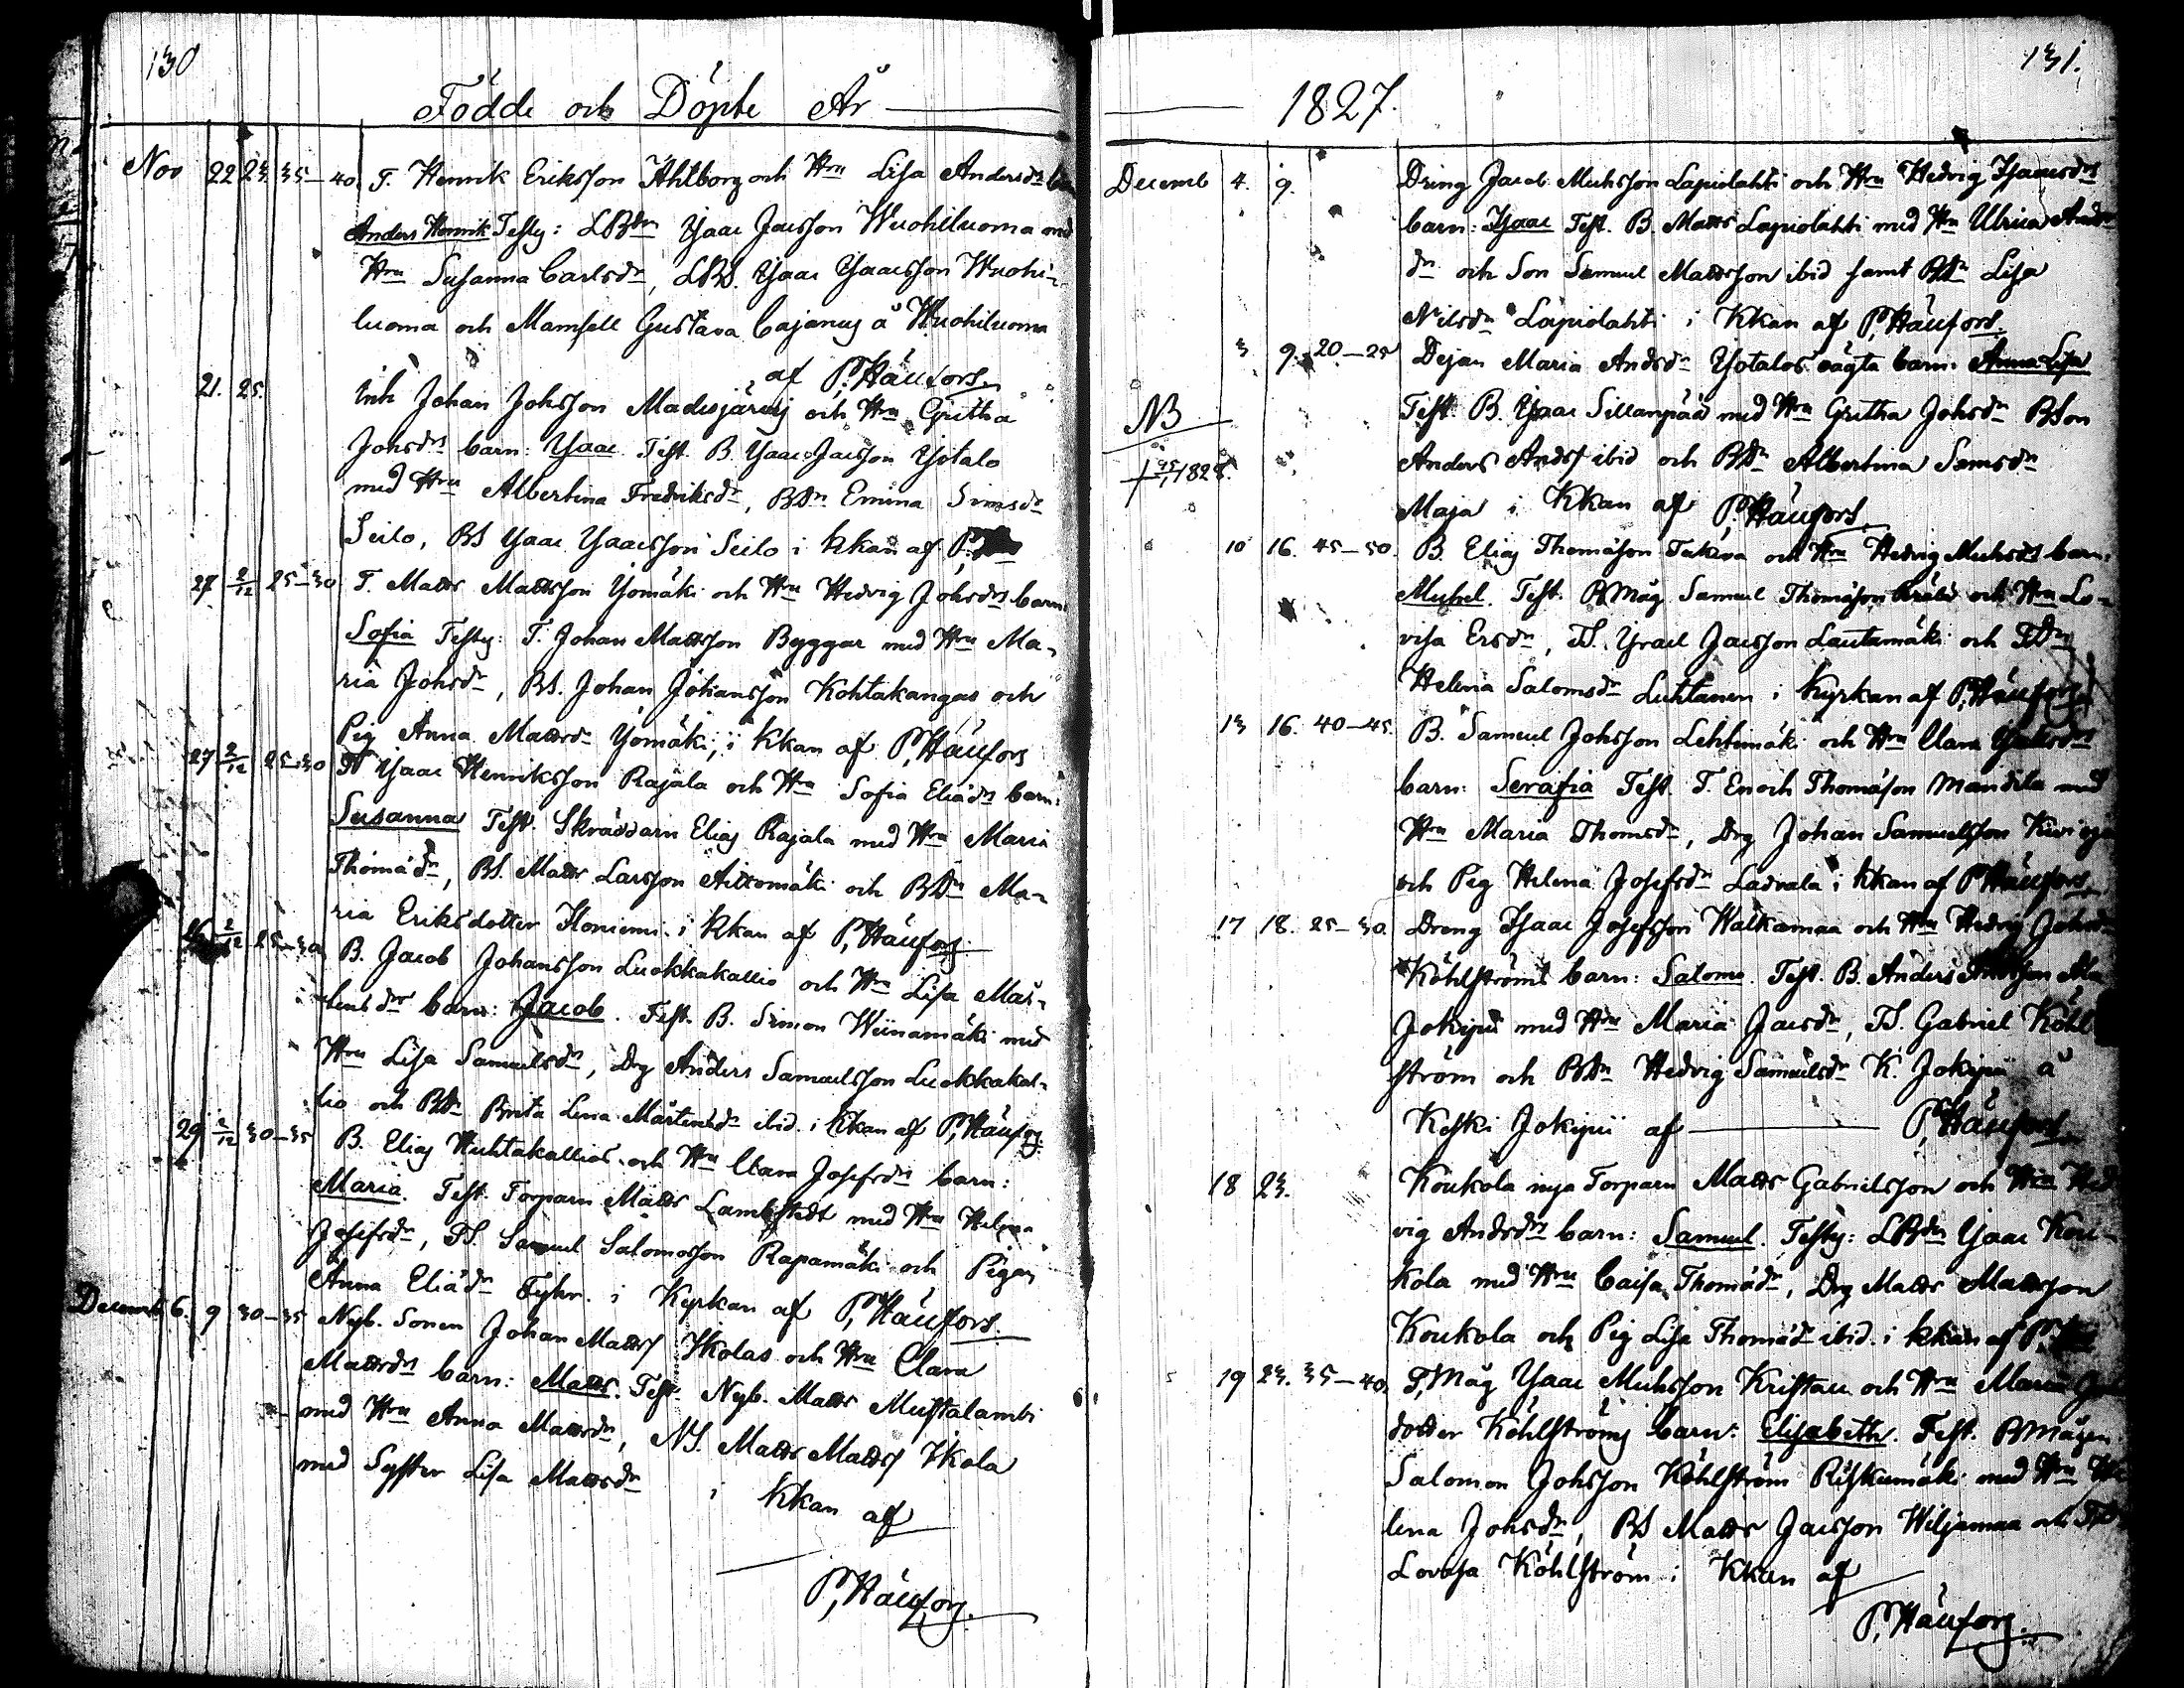 130
Födde och Döpte År
Nov 22 23. 35–40. T. Henrik Eriksson Ahlborg och Hru Lisa Andersdrs barn
Anders Henrik Testes: LBdn Ysaac Jacsson Wuohiluoma med
Hru Susanna Carlsdr, LBS. Ysaac Ysaacsson Wuohi-
luoma och Mamsell Gustava Cajanus å Wuohiluoma
af P. Häufors.
21. 25. Inh Johan Johsson Madesjärvj och Hru Gretha
Johsdrs barn: Ysaac. Test. B. Ysaac Jacsson Yotalo
med Hru Albertina Fredriksdr, BDr Emina Simsdr
Seilo, BS Ysaac Ysaacsson Seilo i kkan af P.
27. 2/12 25–30 T. Matts Mattsson Yömäki och Hru Hedvig Johsdrs barn:
Sofia Testes: T. Johan Mattsson Byggar med Hru Ma-
ria Johsdr, BS. Johan Johansson Kohtakangas och
Pig Anna Mattsdr Yömäki, i kkan af P. Häufors
27 2/12 25–30 Ysaac Henriksson Rajala och Hru Sofia Eliädrs barn:
Susanna Test. Skräddarn Elias Rajala med Hru Maria
Thomädr, BS. Matts Larsson Aittomäki och BDr Ma-
ria Eriksdotter Iloniemi i kkan af P. Häufors.
2/12 25–30 B. Jacob Johansson Luokkakallio och Hru Lisa Mår-
tensdrs barn: Jacob. Test. B. Simon Wiinamäki med
Hru Lisa Samuelsdr, Drg Anders Samuelsson Luokkakal-
lio och BDr Brita Lena Mårtensdr ibid. i kkan af P. Häufors.
29 2/12 30–35 B. Elias Huhtakallios och Hru Clara Josefsdrs barn:
Maria. Test. Torparn Matts Lambstedt med Hru Helena
Josefsdr, TS. Samuel Salomosson Rapamäki och Pigan
Anna Eliädr Fyhr. i Kyrkan af P. Häufors.
Decemb 6. 9 30–35 Nyb. Sonen Johan Matts Ikolas och Hru Clara
Mattsdrs barn: Matts. Test. Nyb. Matts Mustalambi
med Hru Anna Mattsdr, NS. Matts Matts Ikola
med Syster Lisa Mattsdr i kkan af
P. Häufors.
131.
1827.
Decemb 4. 9. Dreng Jacob Michsson Lapiolahti och Hru Hedvig Isaacsdrs
barn: Ysaac Test. B. Matts Lapiolahti med Hru Ulrica Anders
dr och Son Samuel Mattsson ibid samt BDr Lisa
Nilsdr Lapiolahti i Kkan af P. Häufors.
3 9. 20–25 Dejan Maria Andsdr Yotalos oägta barn: Anna Lisa
NB Test. B. Ysaac Sillanpää med Hru Gretha Johsdr BSon
† 1828. Anders Ands ibid och BDr Albertina Samsdr
Maja i Kkan af P. Häufors.
10 16. 45–50. B. Elias Thomäson Takiva och Hru Hedvig Michsdrs barn:
Michel. Test. BMåg Samuel Thomäson och Hru Lo-
visa Ersdr, TS. Ysrael Jacsson Lautamäki och TDr
Helena Salomsdr Luhtanen i Kyrkan af P. Häufors
13 16. 40–45. B. Samuel Johsson Lehtimäki och Hru Clara
barn: Serafia Test. T. Enoch Thomäson Mandila med
Hru Maria Thomsdr, Drg Johan Samuelsson
och Pig Helena Josefsdr Ladvala i kkan af P. Häufors
17 18. 25–30. Dreng Isaac Josefsson Walkamaa och Hru Hedvig Johsdr
Köhlströms barn: Salomo. Test. B. Anders
Jokipii med Hru Maria Jacsdr, TS. Gabriel Köhl-
ström och BDr Hedvig Samuelsdr K. Jokipii å
Koski Jokipii af P. Häufors
18 23. Koukola nya Torparn Matts Gabrielsson och Hru Hed
vig Andsdrs barn: Samuel. Testes: LBdn Ysaac Kou-
kola med Hru Caisa Thomädr, Drg Matts Mattsson
Koukola och Pig Lisa Thomädr ibid. i kkan af P.
19 23. 35–40. T,Måg Ysaac Michsson Kristau och Hru Maria
dotter Köhlströms barn: Elisabeth. Test. BMågen
Salomon Johsson Köhlström Riskumäki med Hru He
lena Johsdr, BS Matts Jacsson Wiljamaa och
Lovisa Köhlström i Kkan af
P. Häufors.